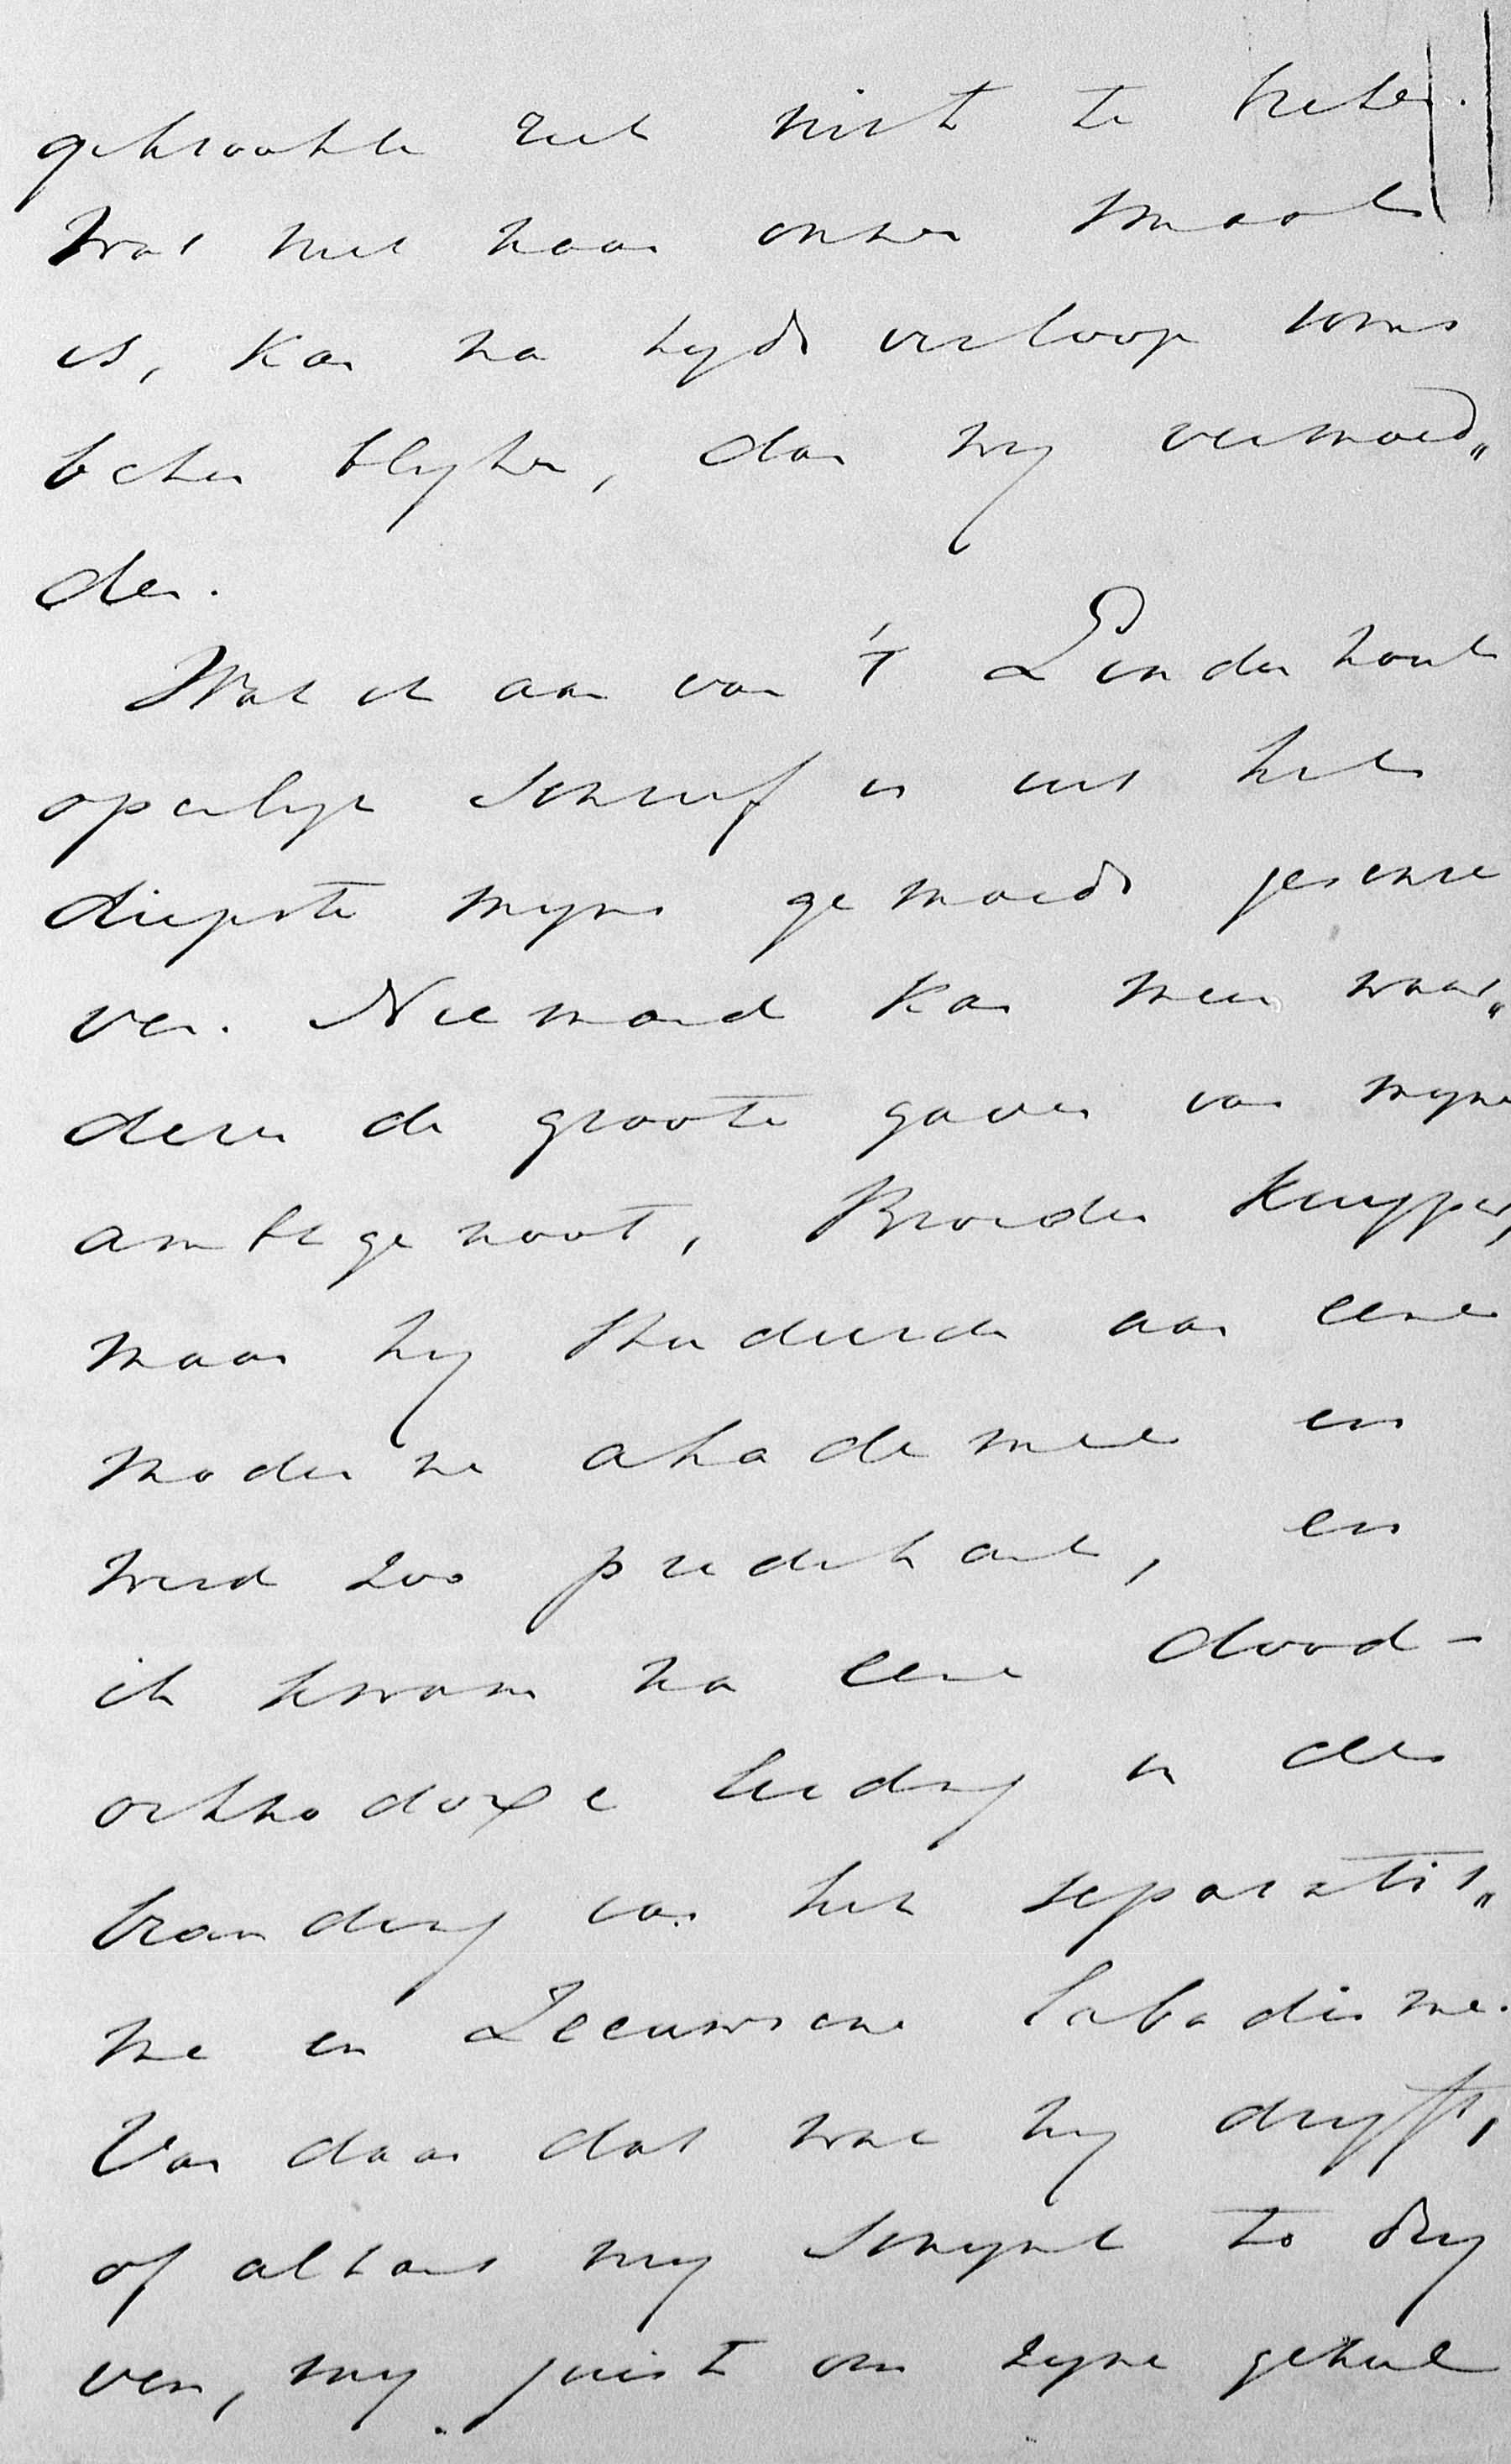 gekrookte riet niet te breken.
Wat niet naar onzen smaak
is, kan na tyds verloop soms
beter blyken, dan wy vermoed„
den.
Wat ik aan van 't Lindenhout
openlyk schreef is uit het
diepste myns gemoeds geschre
ven. Niemand kan meer waar„
deren de groote gaven van myn
ambtgenoot, Broeder Kuyper,
maar hy studeerde aan eene
moderne akademie en
werd zoo predikant, en
ik kwam na eene dood-
orthodoxe leiding in de
branding van het separatis„
me en Zeeuwsche labadisme.
Van daar dat wat hy dryft,
of althans my schynt te dry
ven, my juist om zyne geheel